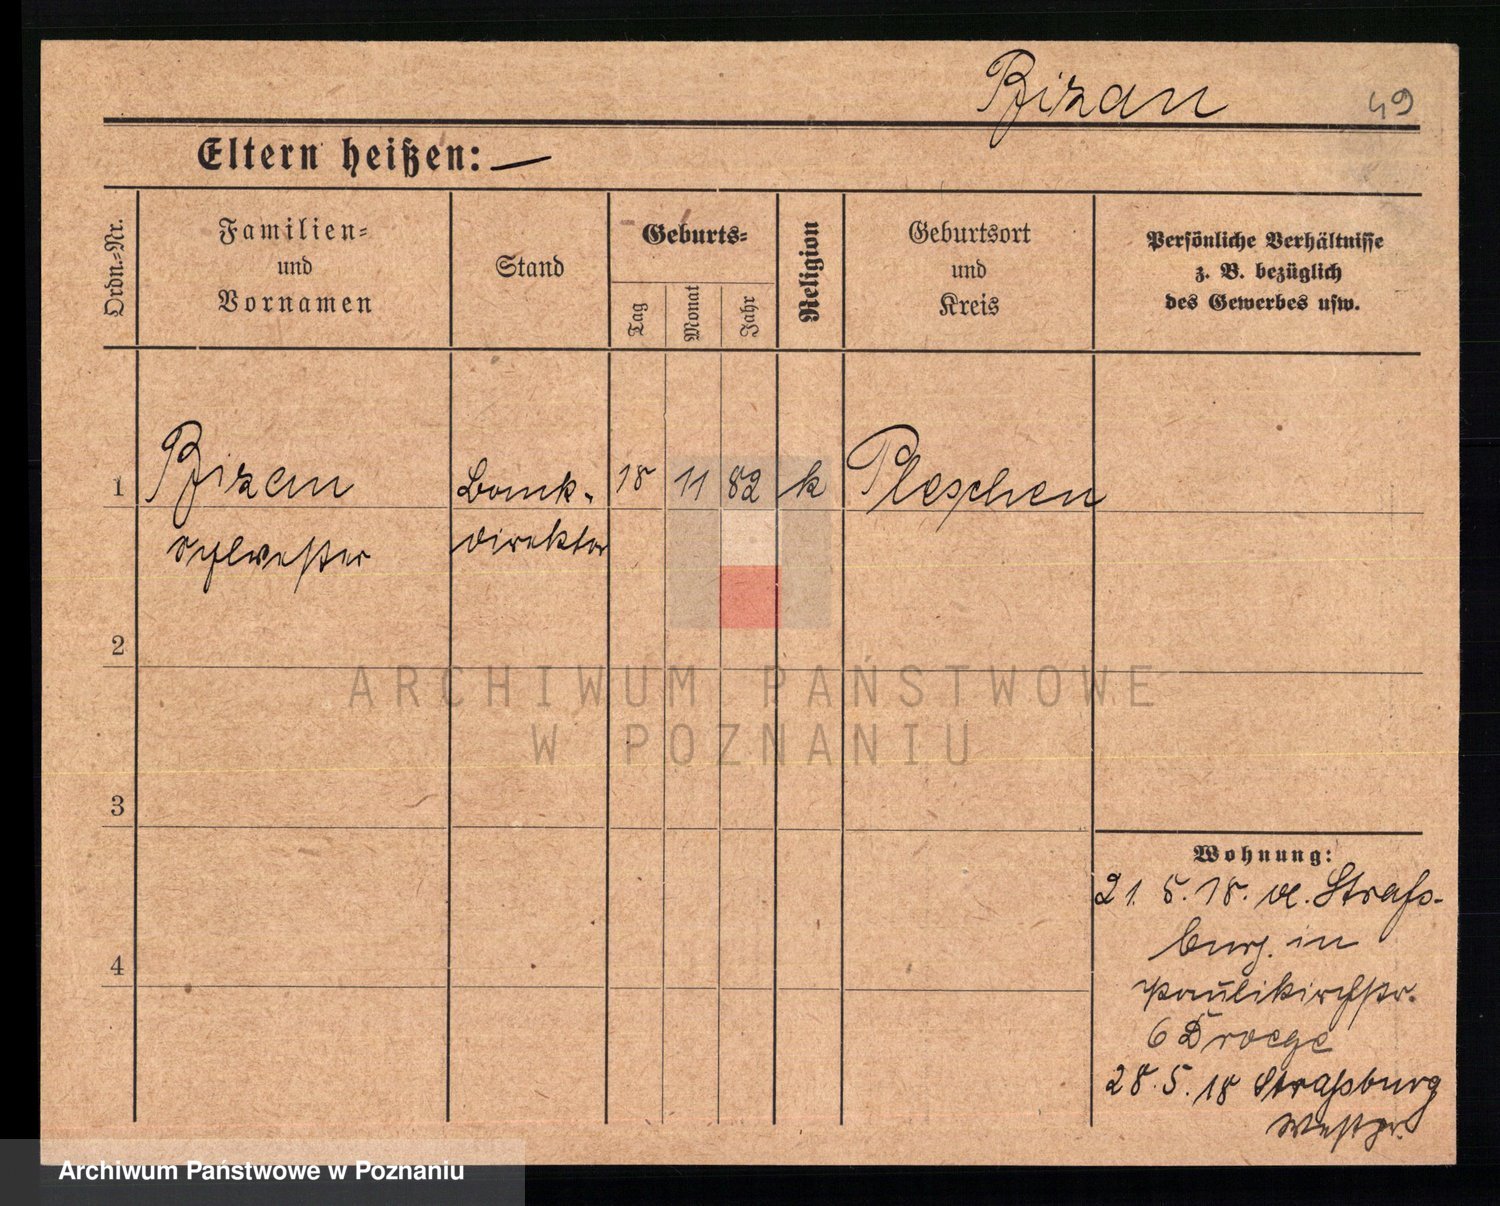 Bizan
49
Eltern heißen: —
Ordn.-Nr.
Familien-
und
Vornamen
Stand
Geburts-
Tag
Monat
Jahr
Religion
Geburtsort
und
Kreis
Persönliche Verhältnisse
z. B. bezüglich
des Gewerbes usw.
1 Bizan Bank- 18 11 82 k Pleschen
Sylvester direktor
2
ARCHIWUM PAŃSTWOWE
W POZNANIU
3
Wohnung:
21. 5. 18. Strass-
burg. in
4
Paulikirchstr.
6 Droege
28. 5. 18 Strassburg
Westpr.
Archiwum Państwowe w Poznaniu